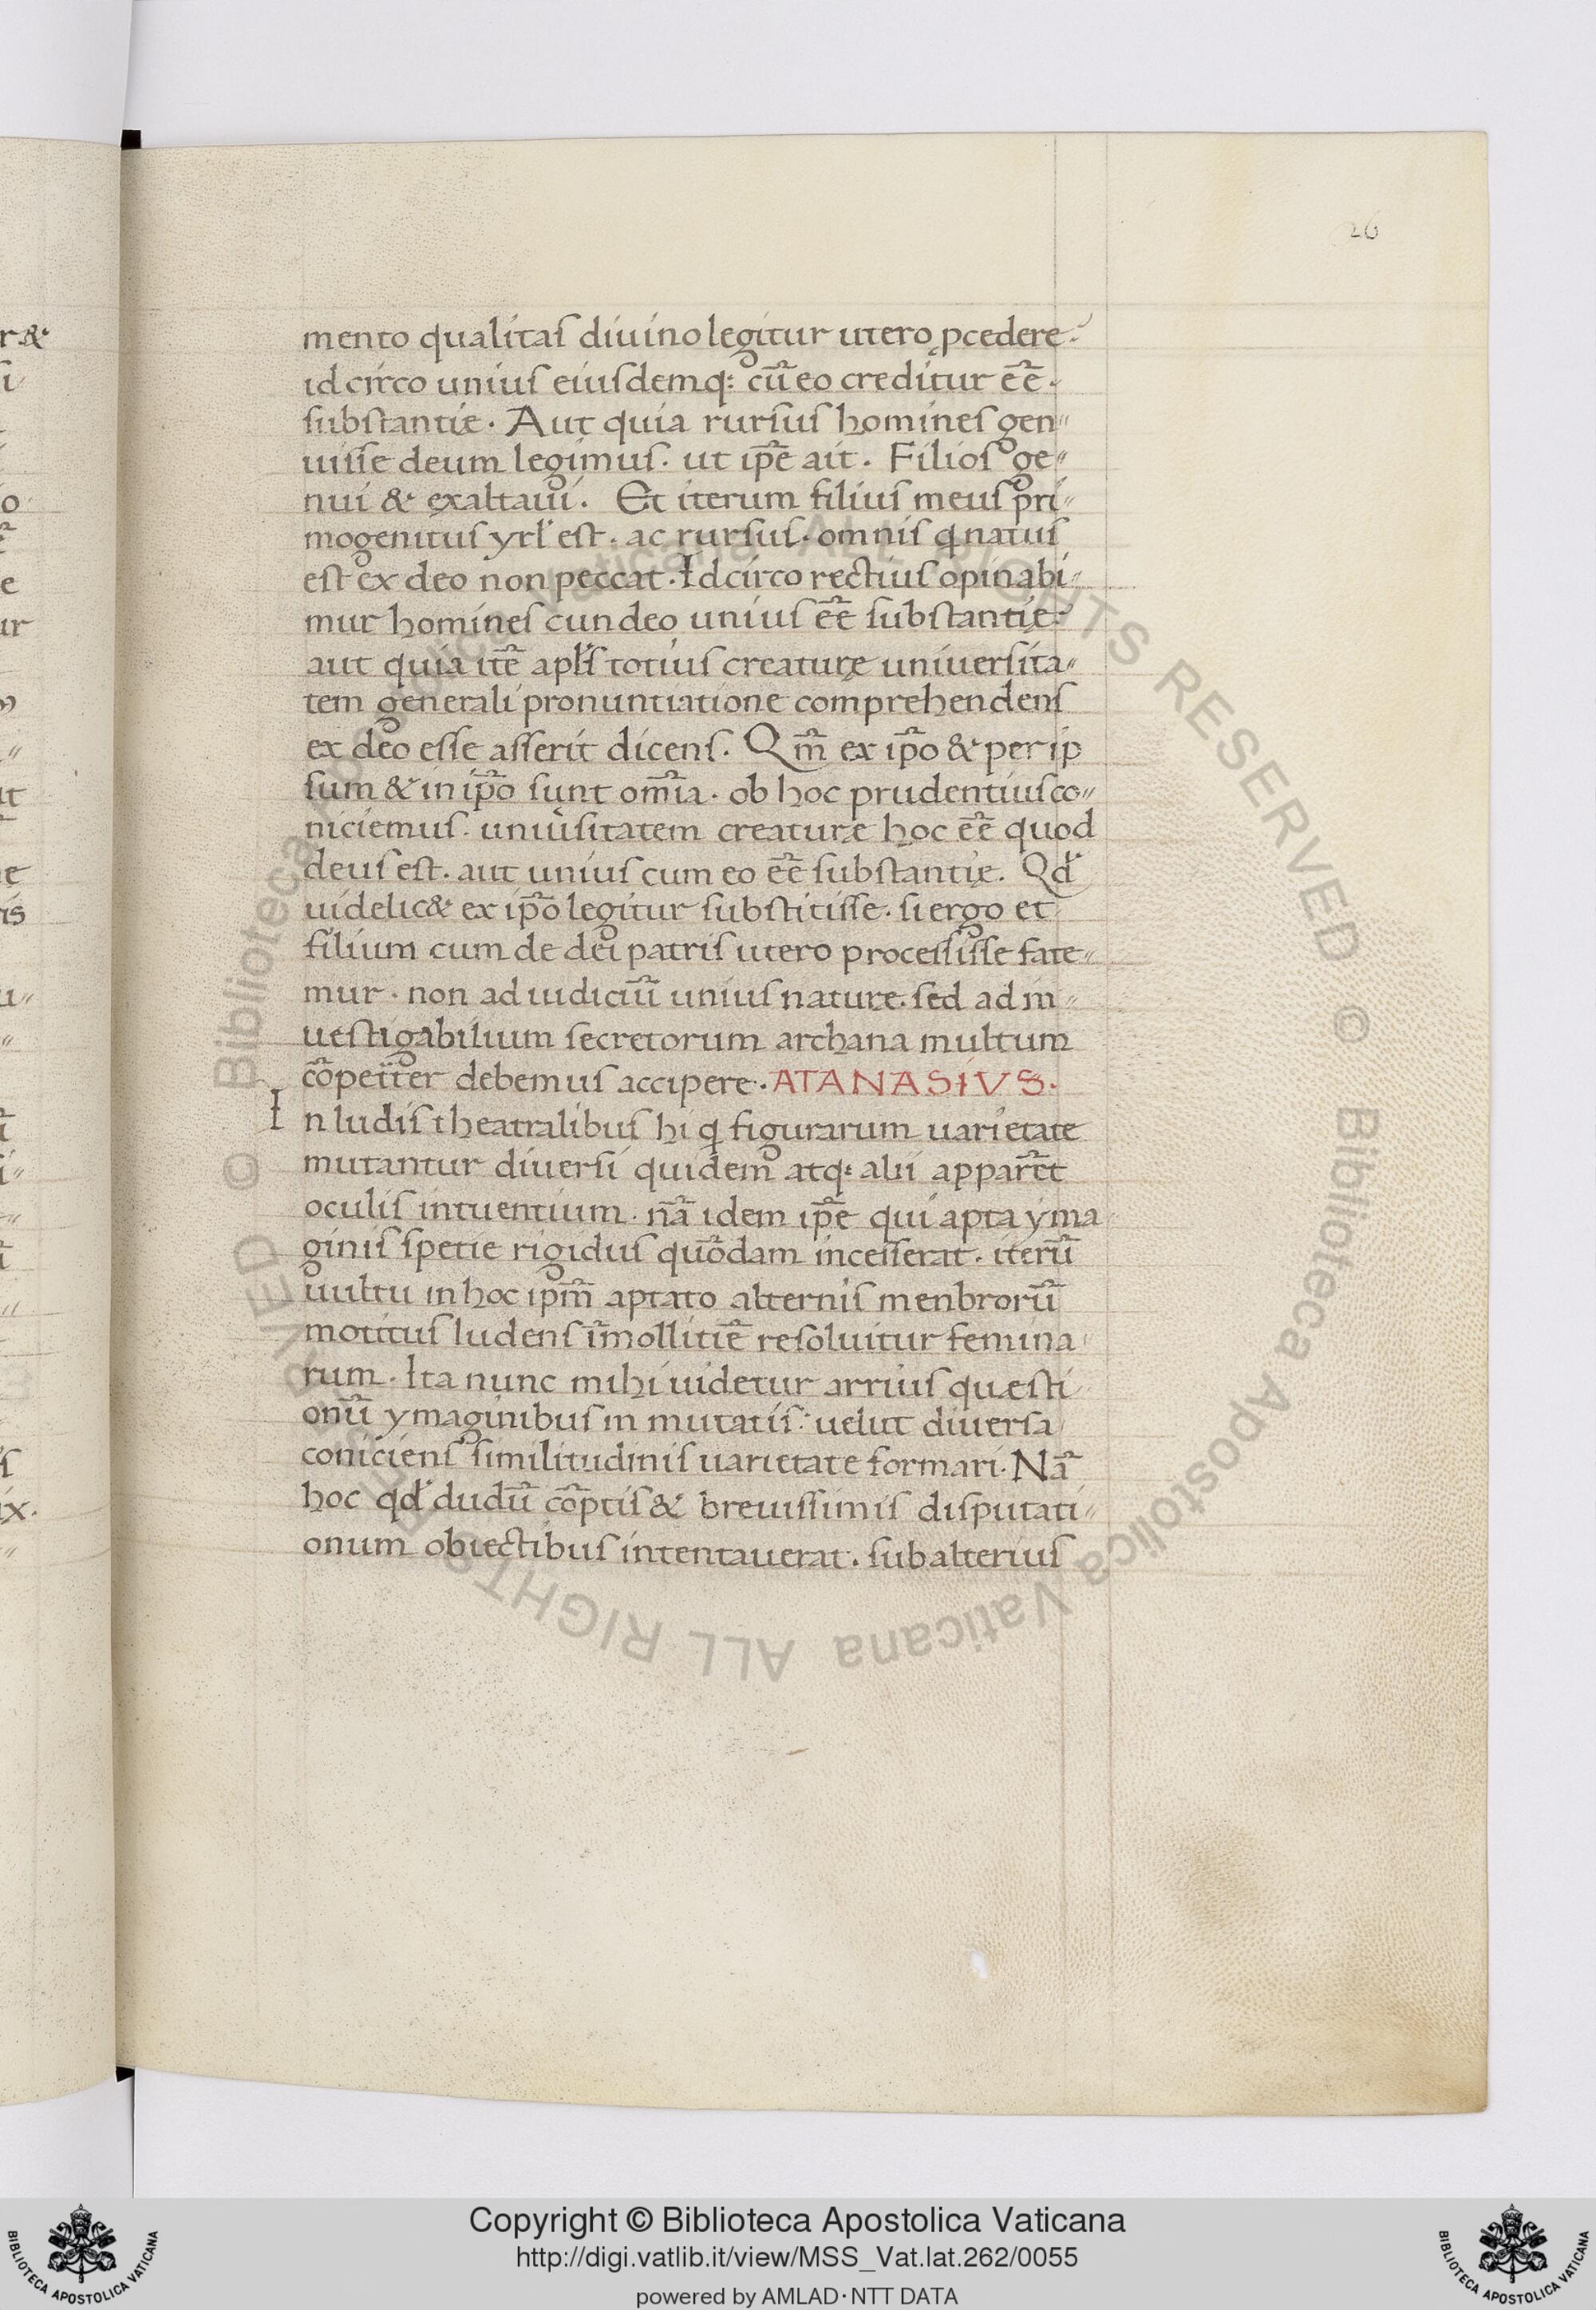 26
mento qualitas diuino legitur utero ꝓcedere.
id circo unius eiusdemq: cū eo creditur ēē.
substantię. Aut quia rursus homines gen〃
uisse deum legimus. ut ip̄e ait. Filios ge〃
nui & exaltaui. Et iterum filius meus pri〃
mogenitus yrl' est. ac rursus. omnis q natus
est ex deo non peccat. Idcirco rectius opinabi〃
mur homines cun deo unius ēē substantię.
aut quia itē apl's totius creaturę uniuersita〃
tem generali pronuntiatione comprehendens
ex deo esse asserit dicens. Qm̄ ex ip̄o & per ip
sum & in ip̄o sunt om̄ia. ob hoc prudentius co〃
niciemus. uniu'sitatem creaturę hoc ēē quod
deus est. aut unius cum eo ēē substantię. Qd'
uidelic& ex ip̄o legitur substitisse. si ergo et
filium cum de dei patris utero processisse fate〃
mur. non ad iudiciū unius naturę. sed ad in〃
uestigabilium secretorum archana multum
cōpetīter debemus accipere. ATANASIVS.
In ludis theatralibus hi q figurarum uarietate
mutantur diuersi quidem atq: alii apparēt
oculis intuentium. nā idem ip̄e qui apta yma
ginis spetie rigidus quōdam incesserat. iterū
uultu in hoc ipm̄ aptato alternis menbrorū
motitus ludens ī mollitiē resoluitur femina
rum. Ita nunc mihi uidetur arrius quęsti
onū ymaginibus in mutatis. uelut diuersa
coniciens similitudinis uarietate formari. Nā
hoc qd' dudū cōptis & breuissimis disputati〃
onum obiectibus intentauerat. sub alterius
Copyright © Biblioteca Apostolica Vaticana
http://digi.vatlib.it/view/MSS_Vat.lat.262/0055
powered by AMLAD·NTT DATA